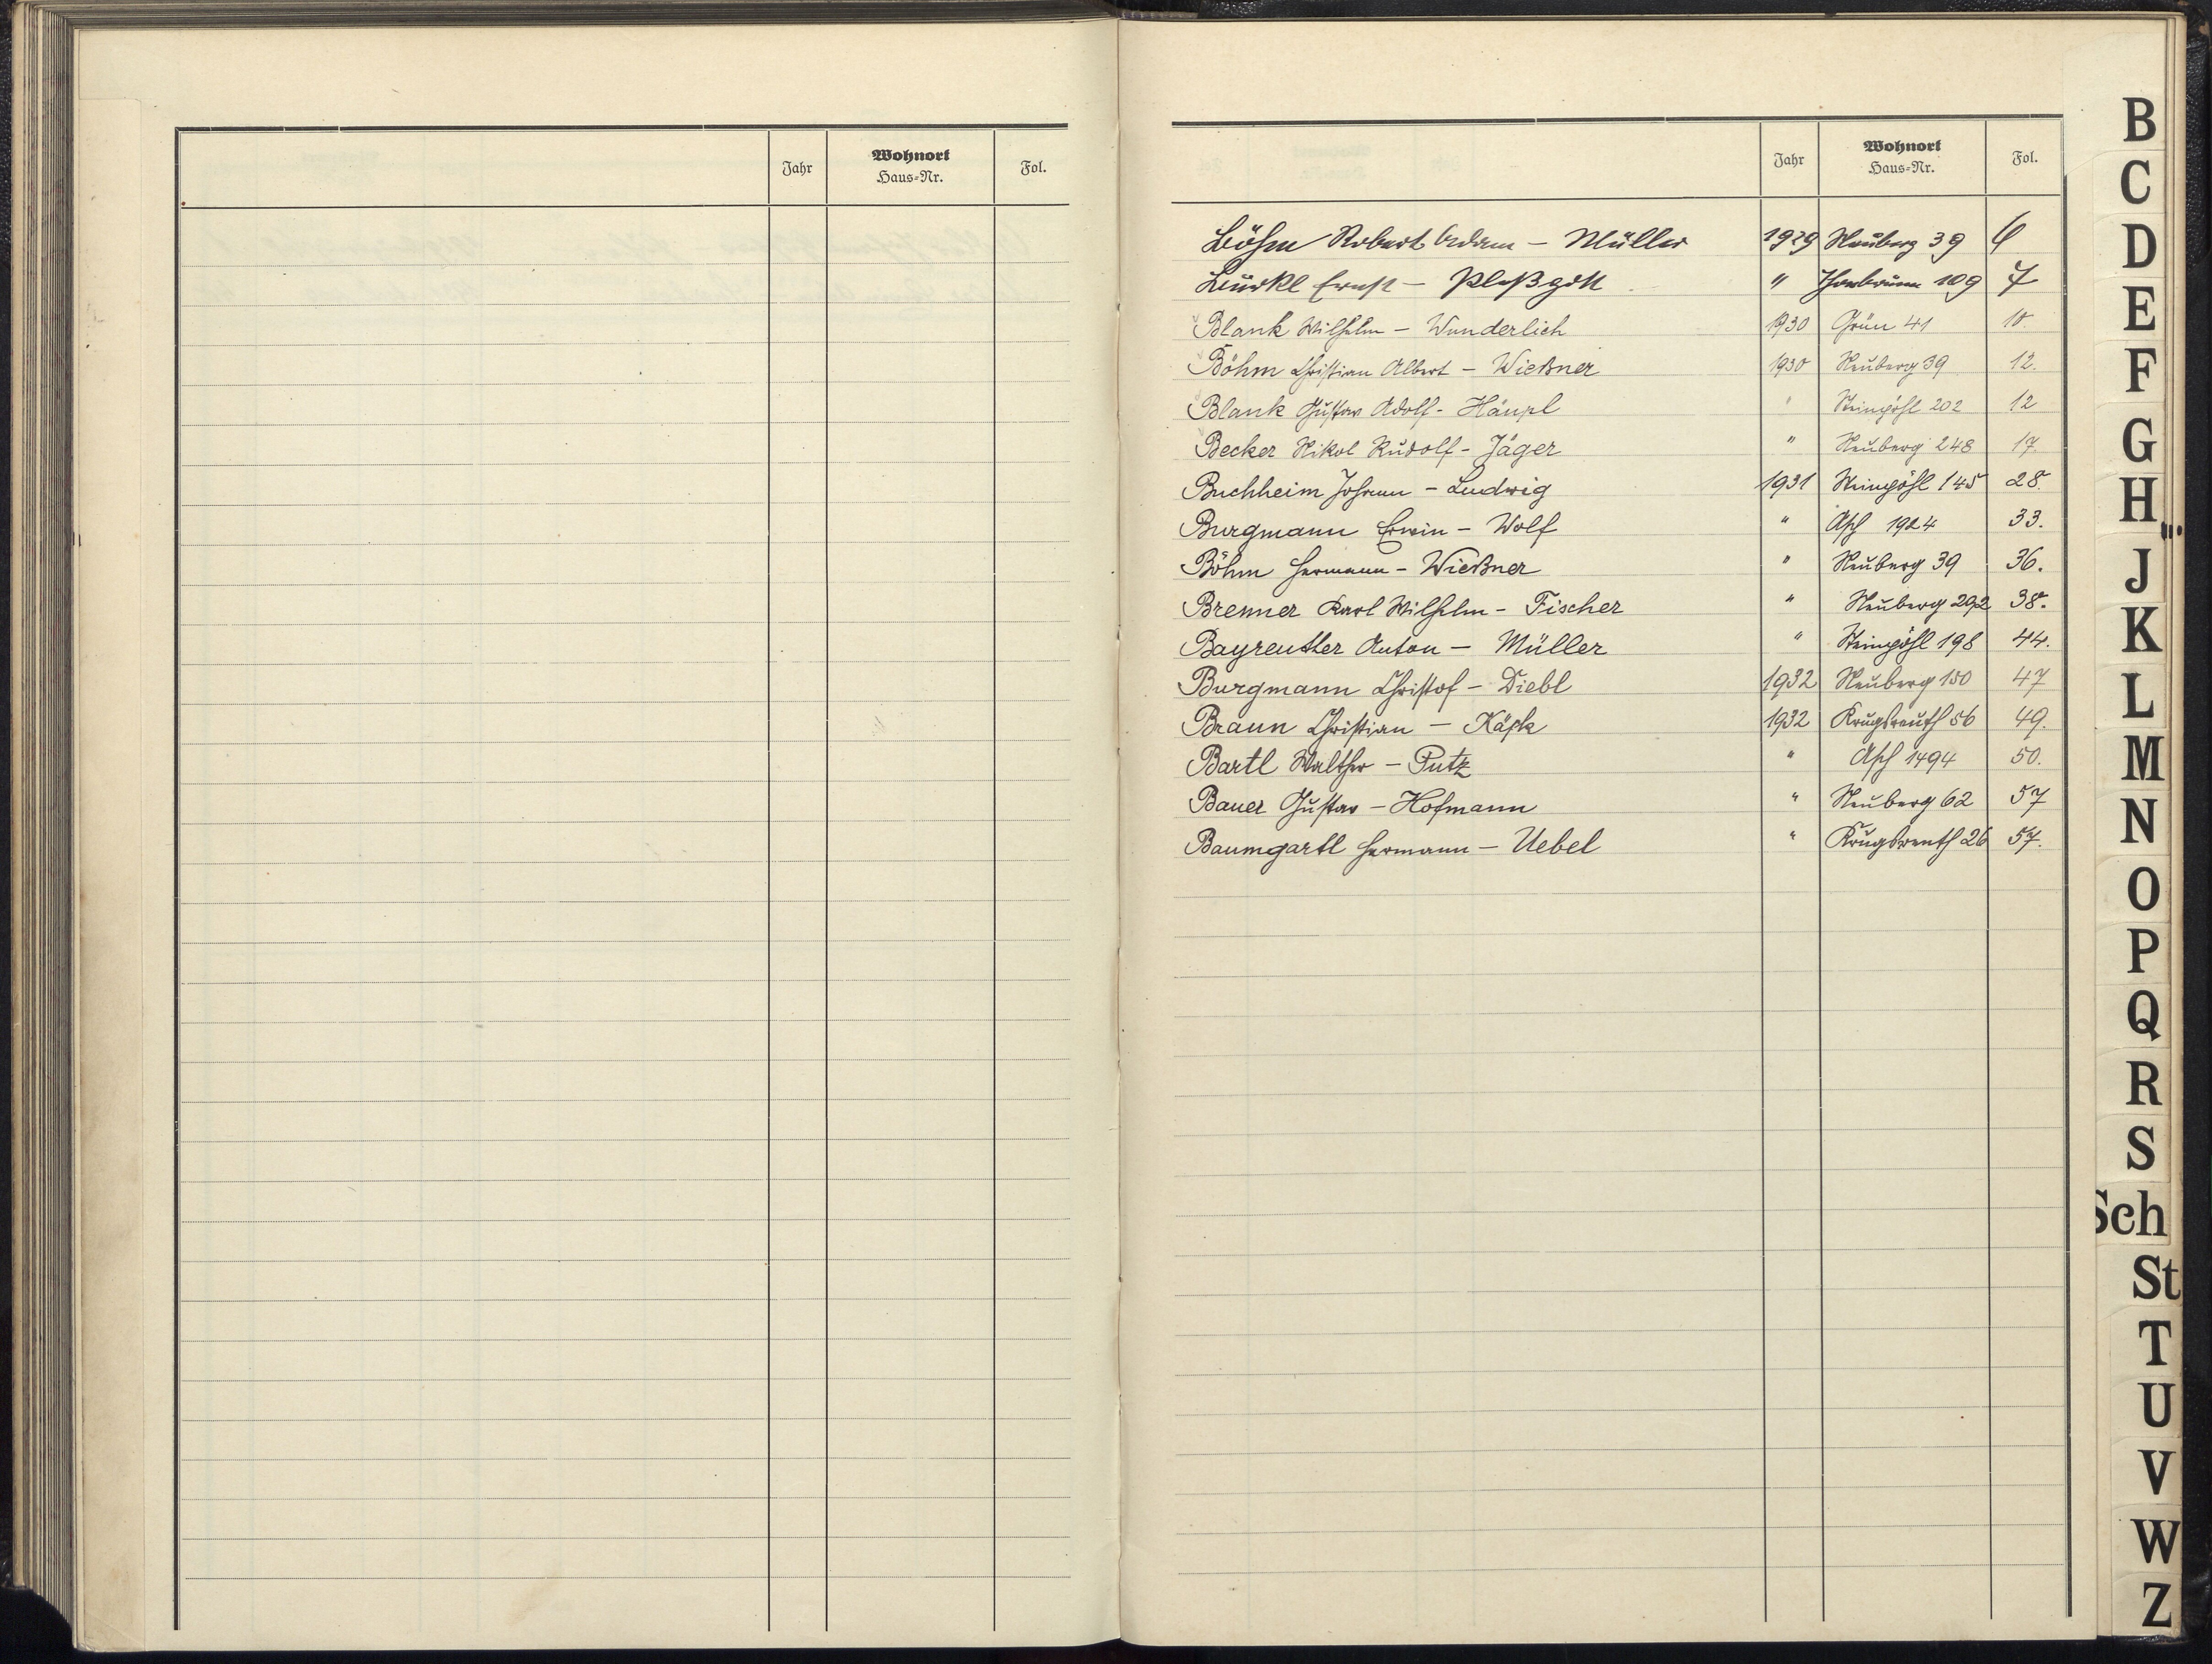 Jahr Wohnort Haus=Nr. Fol.
Jahr Wohnort Haus=Nr. Fol.
Böhm Robert Adam – Müller 1929 Neuberg 39 6
Bürkl Ernst – Ploßgott " Thonbrunn 109 7
Blank Wilhelm – Wunderlich 1930 Grün 41 10.
Böhm Christian Albert – Wießner 1930 Neuberg 39 12.
Blank Gustav Adolf - Häupl " Steinpöhl 202 12
Becker Nikol Rudolf - Jäger " Neuberg 248 17.
Buchheim Johann – Ludwig 1931 Steinpöhl 145 28.
Burgmann Erwin – Wolf " Asch 1924 33.
Böhm Hermann – Wießner " Neuberg 39 36.
Brenner Karl Wilhelm – Fischer " Neuberg 292 38.
Bayreuther Anton – Müller " Steinpöhl 198 44.
Burgmann Christof – Diebl 1932 Neuberg 150 47
Braun Christian – 1932 Krugsreuth 56 49.
Bartl Walther – Putz " Asch 1494 50.
Bauer Gustav – Hofmann " Neuberg 62 57
Baumgartl Hermann – Uebel " Krugsreuth 26 57.
B
C
D
E
F
G
H
J
K
L
M
N
O
P
Q
R
S
Sch
St
T
U
V
W
Z